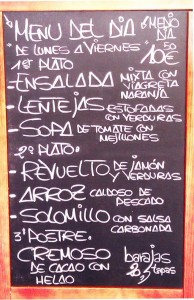 MENU DEL DIA
½ MENÚ DIA
DE LUNES A VIERNES 10€50
1º PLATO
- ENSALADA MIXTA CON VIAGRETA NARANJA
- LENTEJAS ESTOFADAS CON VERDURAS
- SOPA DE TOMATE CON MEJILLONES
2º PLATO:
- REVUELTO DE JAMÓN Y VERDURAS
- ARROZ CALDOSO DE PESCADO
- SOLOMILLO CON SALSA CARBONADA
3º POSTRE:
CREMOSO DE CACAO CON HELAO
barajas
tapas